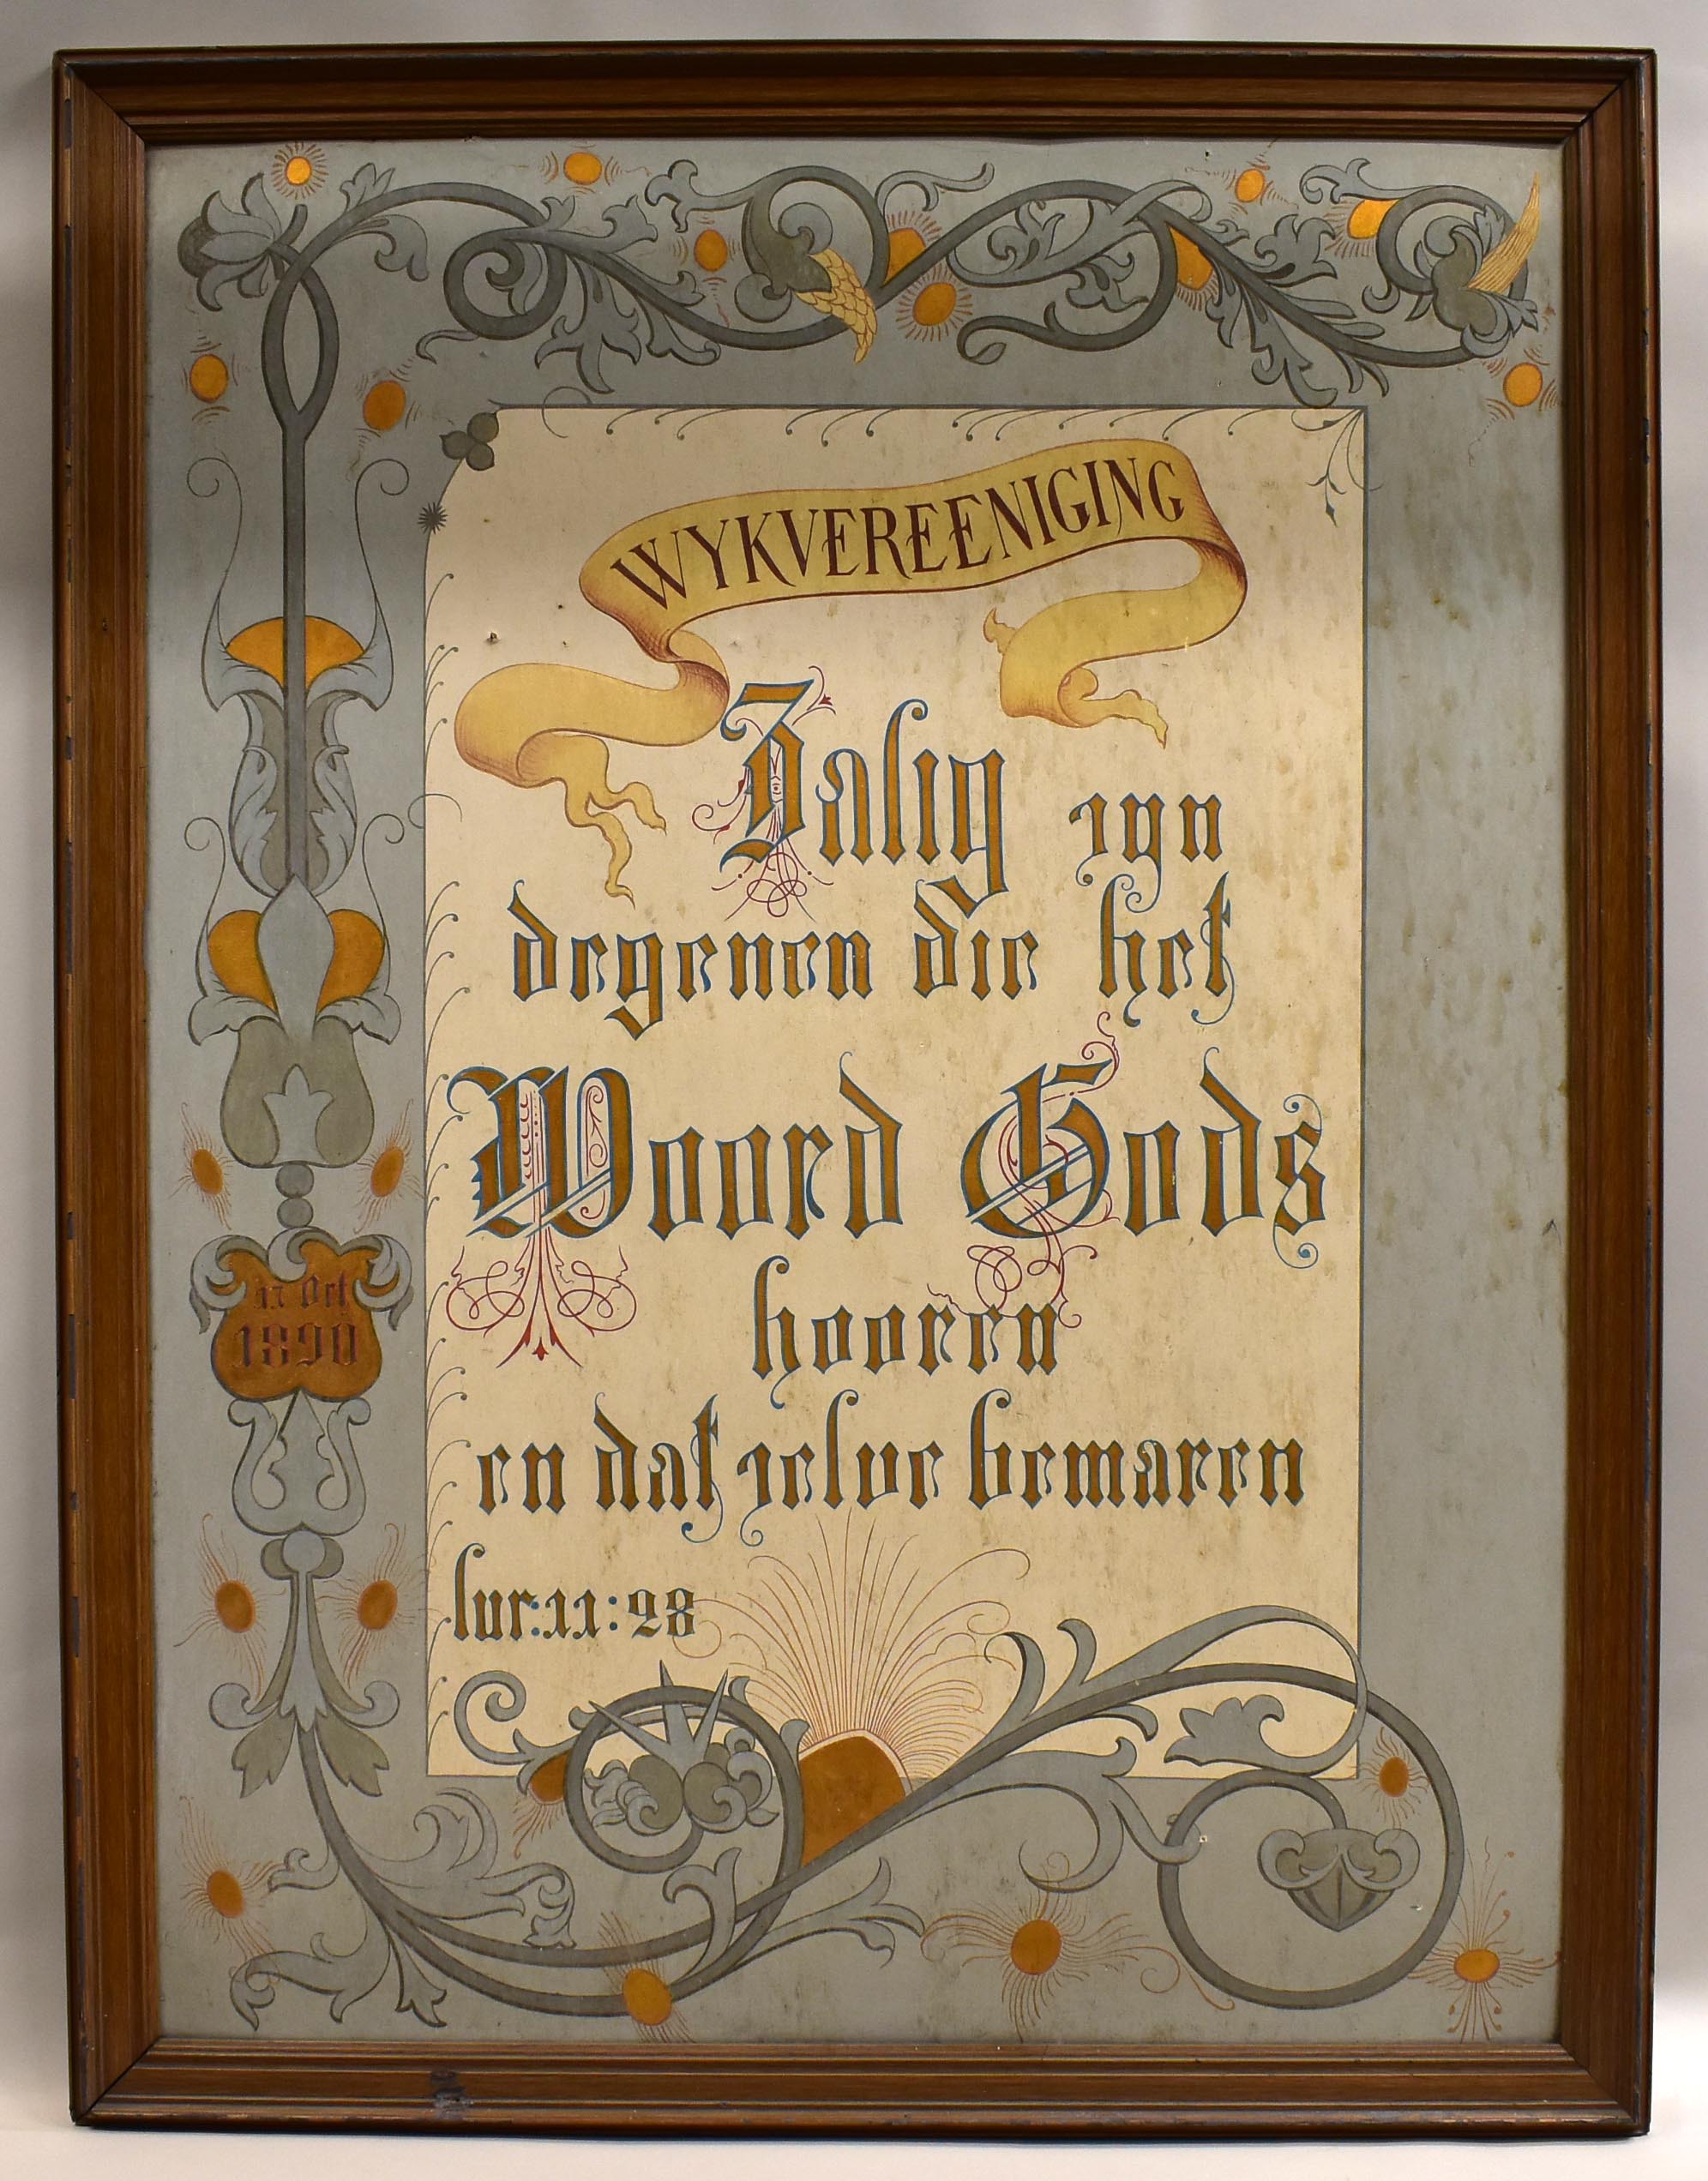 WYKVEREENIGING
Zalig zyn
degenen die het
Woord Gods
hooren
en dat zelve bewaren
luc:11:28
17 Oct
1890